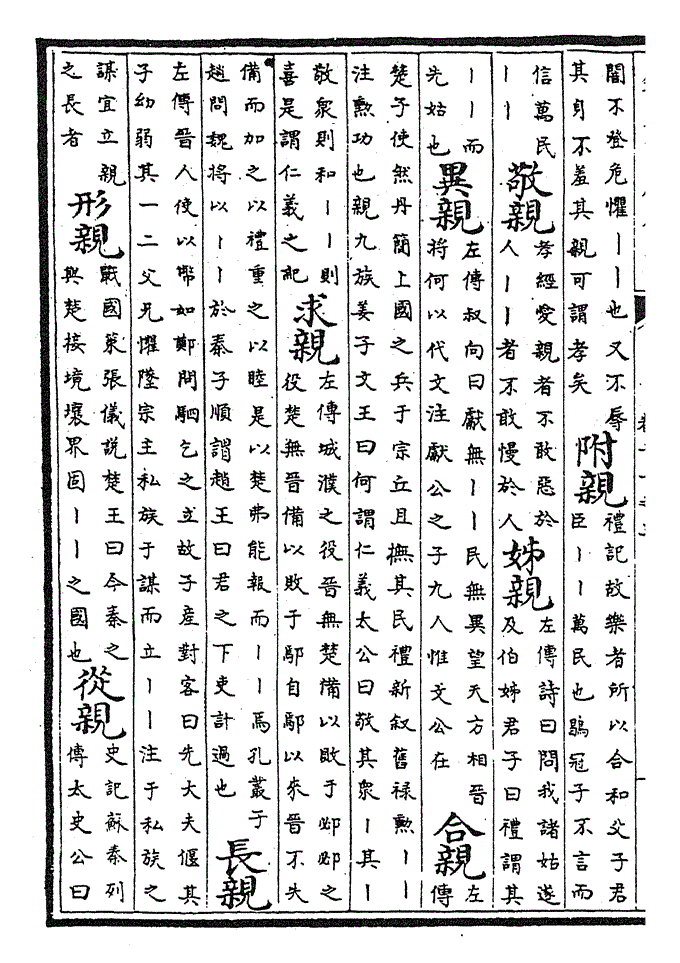 闇不登危懼丨丨也又不辱
其身不羞其親可謂孝矣
附親
禮記故樂者所以合和父子君
臣丨丨萬民也鶡冠子不言而
信萬民
丨丨
敬親
孝經愛親者不敢惡於
人丨丨者不敢慢於人
姊親
左傳詩曰問我諸姑遂
及伯姊君子曰禮謂其
丨丨而
先姑也
異親
左傳叔向曰獻無丨丨民無異望天方相晉
將何以代文注獻公之子九人惟文公在
合親
左
傳
楚子使然丹簡上國之兵于宗丘且撫其民禮新叙舊祿勲丨丨
注勲功也親九族姜子文王曰何謂仁義太公曰敬其衆丨其丨
敬衆則和丨丨則
喜是謂仁義之紀
求親
左傳城濮之役晉無楚備以敗于邲邲之
役楚無晉備以敗于鄢自鄢以來晉不失
備而加之以禮重之以睦是以楚弗能報而丨丨焉孔叢子
趙問魏將以丨丨於秦子順謂趙王曰君之下吏計過也
長親
左傳晉人使以幣如鄭問駟乞之立故子産對客曰先大夫偃其
子幼弱其一二父兄懼墜宗主私族于謀而立丨丨注于私族之
謀宜立親
之長者
形親
戰國策張儀說楚王曰今秦之
與楚接境壤界固丨丨之國也
從親
史記蘇秦列
傳太史公曰